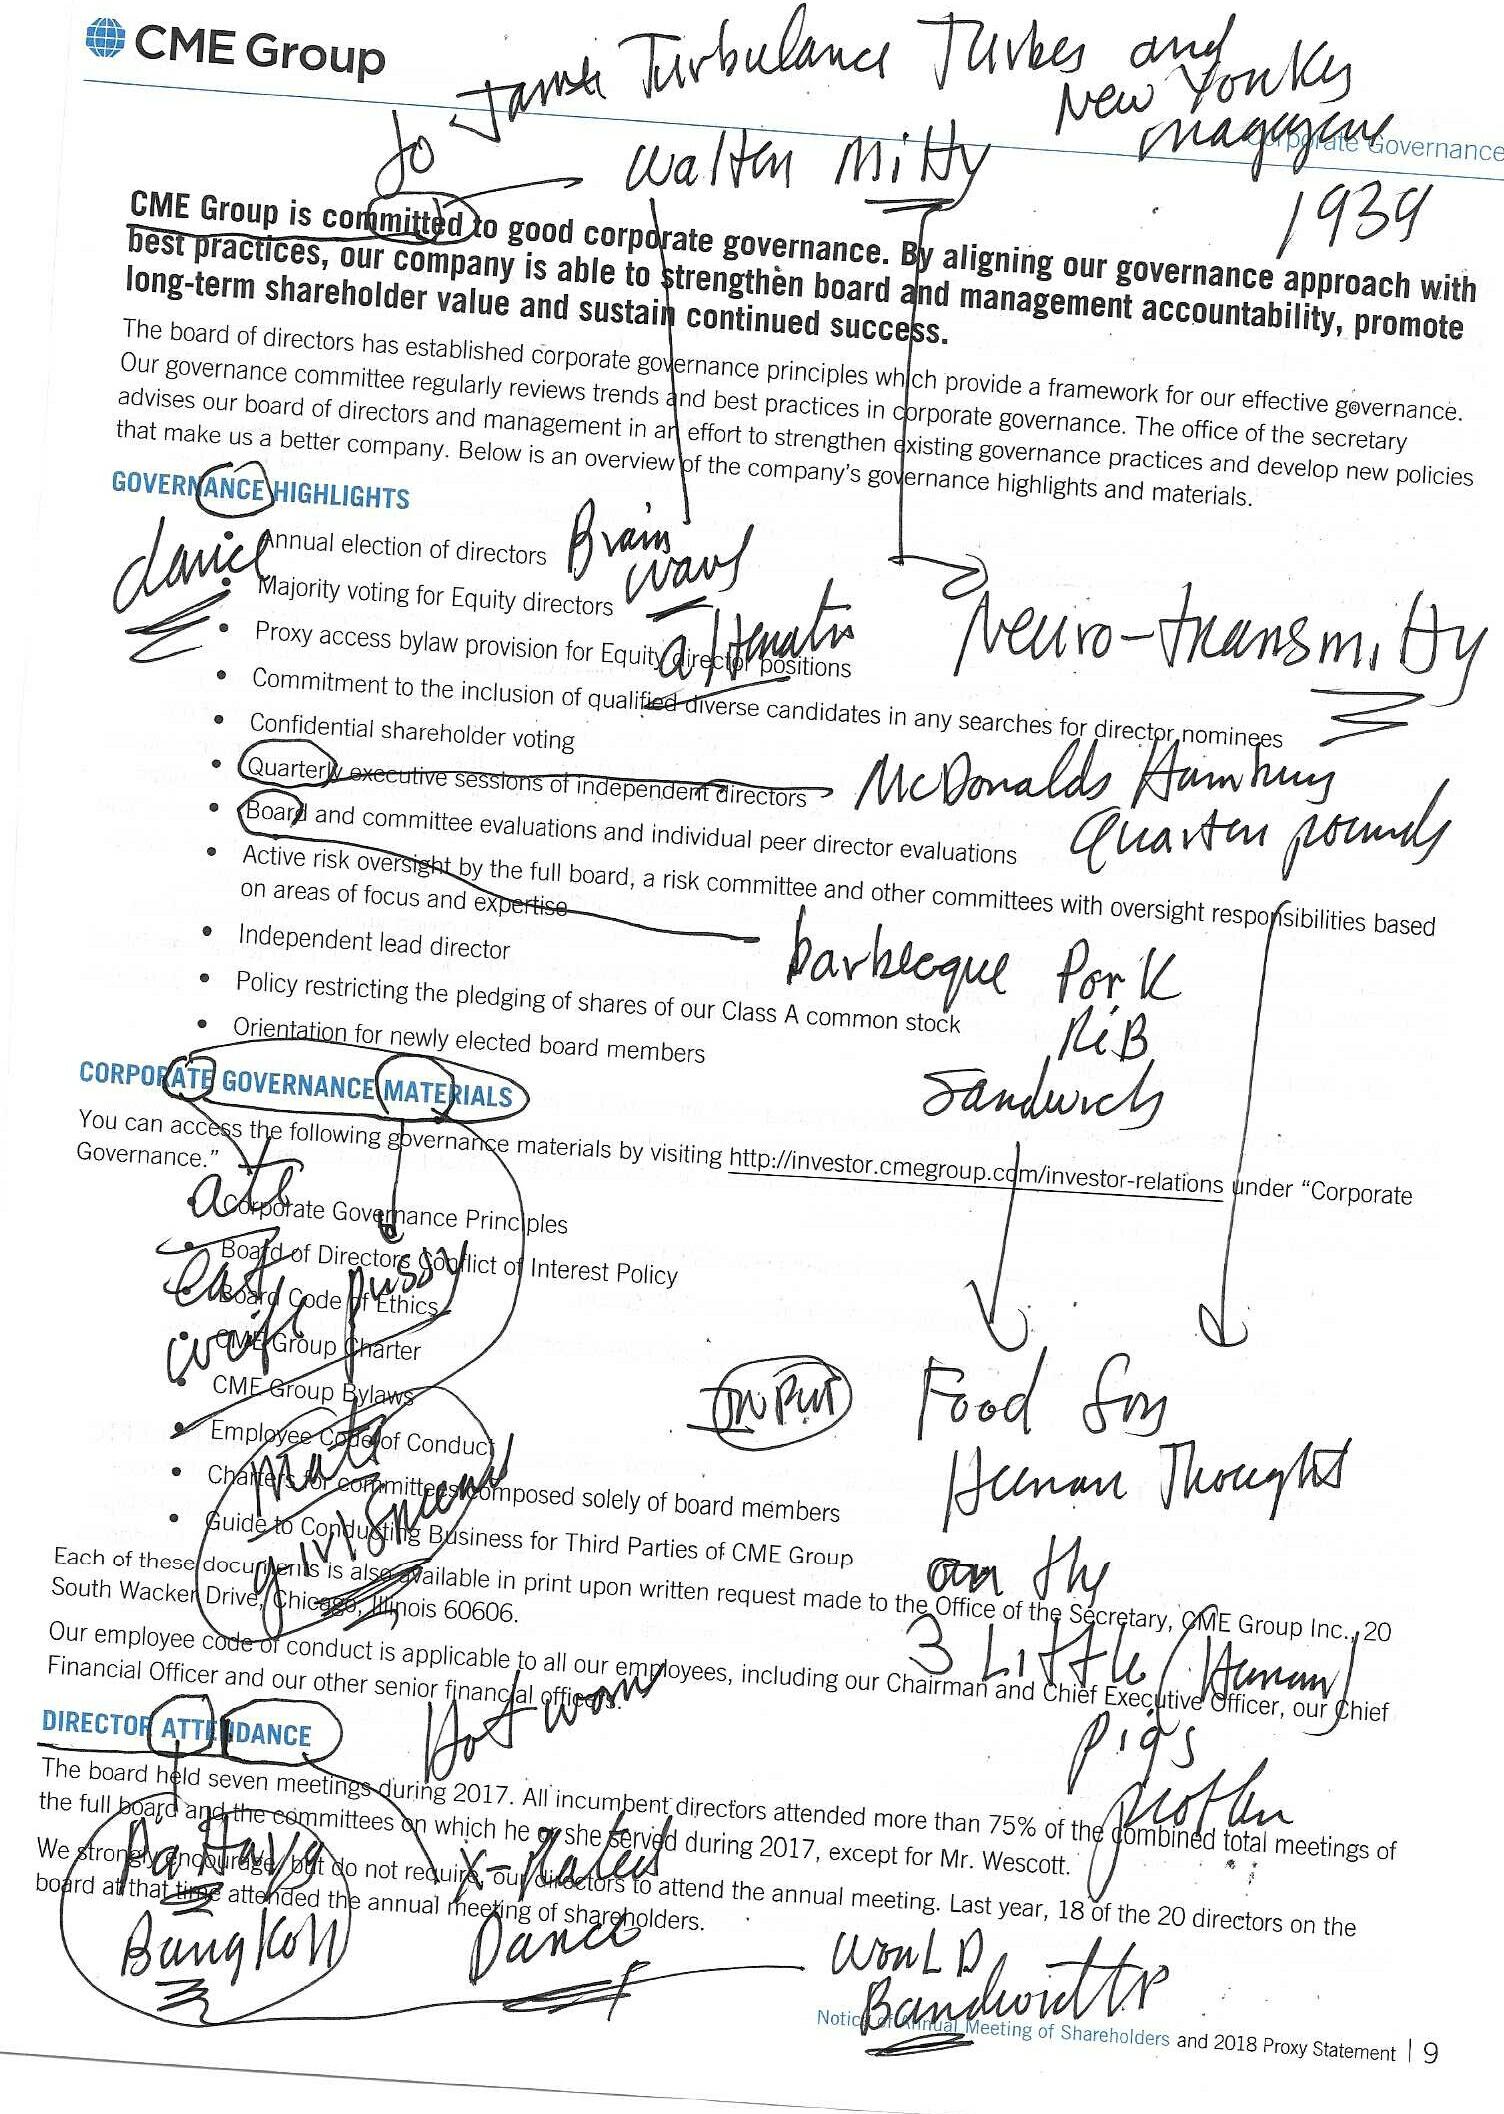 CME Group
to James Turbulance Turbes and
New Yonkes
magazene
Corporate Governance
1939
Walten Mitty
CME Group is committed to good corporate governance. By aligning our governance approach with
best practices, our company is able to strengthen board and management accountability, promote
long-term shareholder value and sustain continued success.
The board of directors has established corporate governance principles which provide a framework for our effective governance.
Our governance committee regularly reviews trends and best practices in corporate governance. The office of the secretary
advises our board of directors and management in an effort to strengthen existing governance practices and develop new policies
that make us a better company. Below is an overview of the company's governance highlights and materials.
GOVERNANCE HIGHLIGHTS
dance
• Annual election of directors
Brain
waves
• Majority voting for Equity directors
Neuro-transmitty
• Proxy access bylaw provision for Equity director positions
• Commitment to the inclusion of qualified diverse candidates in any searches for director nominees
• Confidential shareholder voting
• Quarterly executive sessions of independent directors
McDonalds Hamburg
Quarten pounds
• Board and committee evaluations and individual peer director evaluations
• Active risk oversight by the full board, a risk committee and other committees with oversight responsibilities based
on areas of focus and expertise
barbecque Pork
RiB
Sandwich
• Independent lead director
• Policy restricting the pledging of shares of our Class A common stock
• Orientation for newly elected board members
CORPORATE GOVERNANCE MATERIALS
You can access the following governance materials by visiting http://investor.cmegroup.com/investor-relations under "Corporate
Governance."
ate
eat
wife pussy
• Corporate Governance Principles
• Board of Directors Conflict of Interest Policy
• Board Code of Ethics
• CME Group Charter
• CME Group Bylaws
• Employee Code of Conduct
• Charters for committees composed solely of board members
• Guide to Conducting Business for Third Parties of CME Group
mate
INPUT
Food For
Human Thought
on the
3 Little (Human)
Pigs
Each of these documents is also available in print upon written request made to the Office of the Secretary, CME Group Inc., 20
South Wacker Drive, Chicago, Illinois 60606.
Our employee code of conduct is applicable to all our employees, including our Chairman and Chief Executive Officer, our Chief
Financial Officer and our other senior financial officers.
DIRECTOR ATTENDANCE
The board held seven meetings during 2017. All incumbent directors attended more than 75% of the combined total meetings of
the full board and the committees on which he or she served during 2017, except for Mr. Wescott.
We strongly encourage, but do not require, our directors to attend the annual meeting. Last year, 18 of the 20 directors on the
board at that time attended the annual meeting of shareholders.
Pattaya
Bangkok
X-Rated
Dance
WORLD
Bandwidth
Notice of Annual Meeting of Shareholders and 2018 Proxy Statement | 9